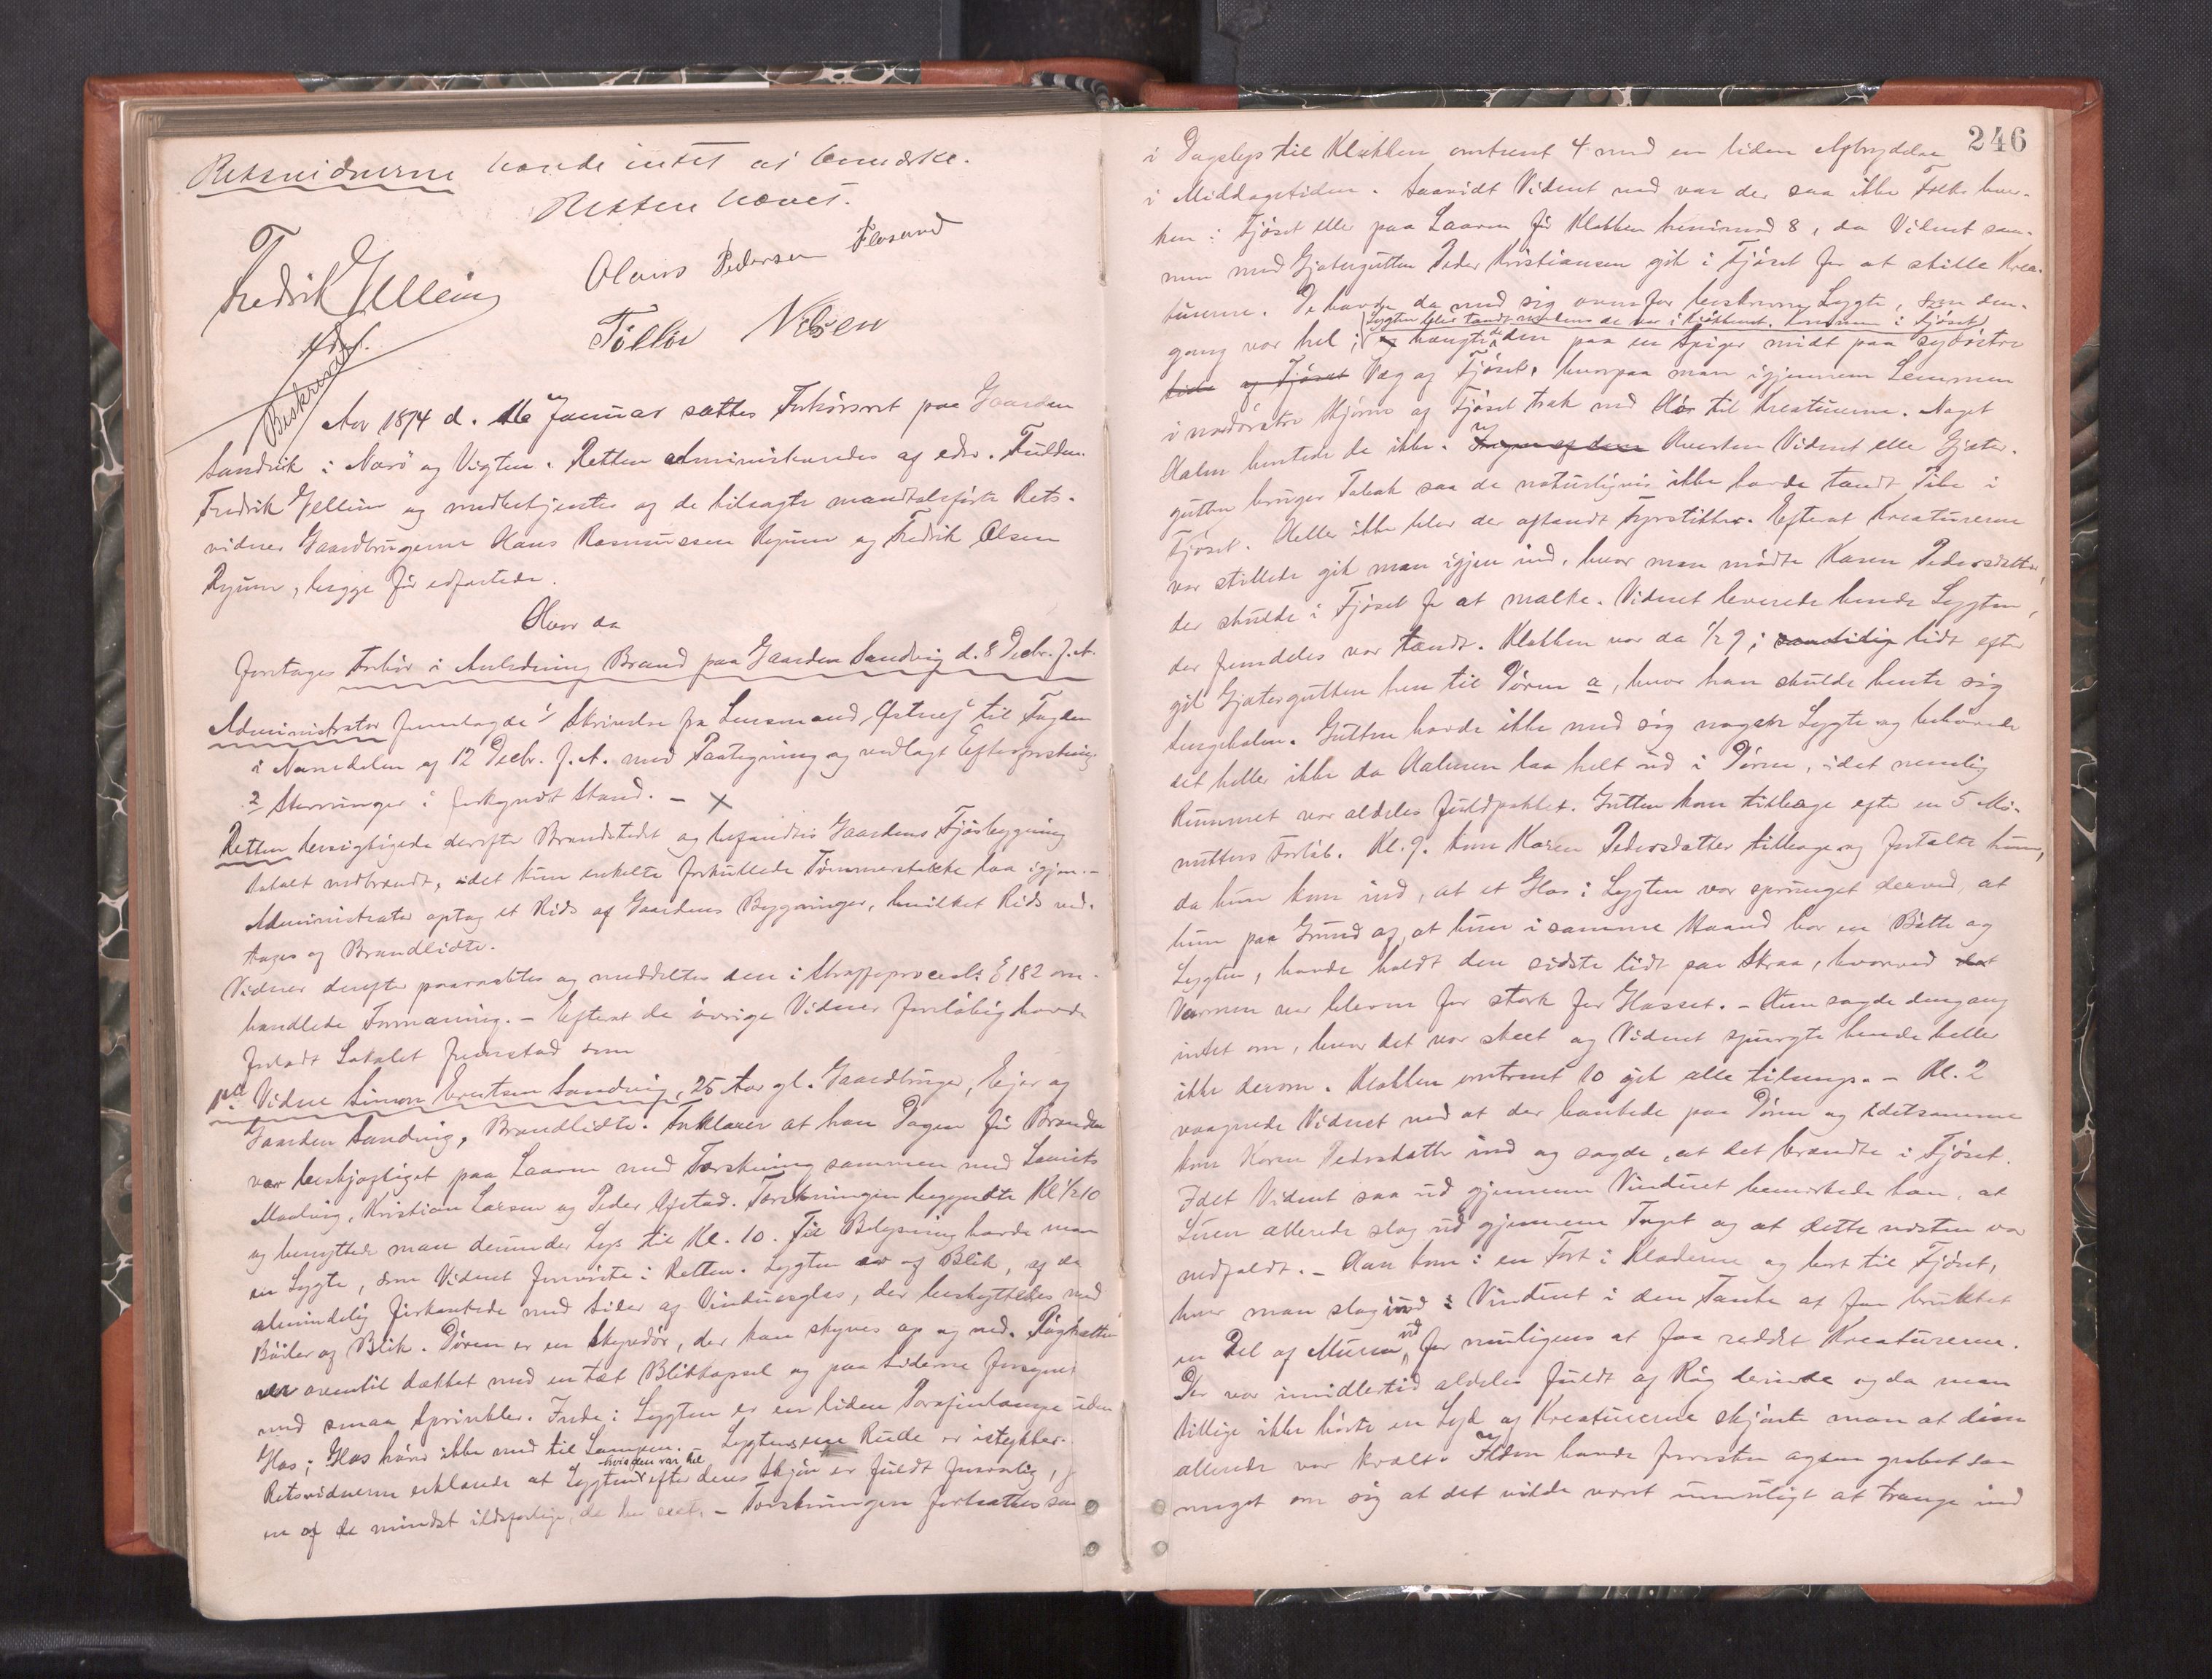 Retsvidnerne havde intet at bemærke.
Retten hævet.
Fredrik Gellein
edsv.
Olaus Pedersen Flosand
Tollev Nilsen
Beskrevet
Aar 1874 d. 16 Januar sattes Forhørsret paa Gaarden
Sandvik i Nærø og Vigten. Retten administreredes af edsv. Fuldm.
Fredrik Gellein og medbetjentes af de tilsagte mandtalsførte Rets-
vidner Gaardbrugerne Hans Rasmussen Ryum og Fredrik Olsen
Ryum, begge før edfæstede.
Hvor da
foretages Forhør i Anledning Brand paa Gaarden Sandvig d. 8 Decbr. f. A.
Administrator fremlagde 1 Skrivelse fra Lensmand til Fogden
i Namdalen af 12 Decbr. f. A. med Paategning og vedlagt Efterforskning
2 Stevninger i forkyndt Stand. – x
Retten besigtigede derefter Brandstedet og befandtes Gaardens Fjøsbygning
totalt nedbrændt, idet kun enkelte forkullede Tømmerstokke laa igjen. –
Administrator optog et Rids af Gaardens Bygninger, hvilket Rids ved-
toges af Brandlidte.
Vidner derefter paaraabtes og meddeltes den i Straffeprocesl: § 182 om-
handlede Formaning. – Efterat de øvrige Vidner foreløbig havde
forladt Lokalet fremstod som
1ste Vidne Simon Evertsen Sandvig, 25 Aar gl. Gaardbruger, Eier af
Gaarden Sandvig, Brandlidte. Forklarer at han Dagen før Branden
var beskjæftiget paa Laaven med Tærskning sammen med Laurits
Kristian Larsen og Peder Ofstad. Tærskningen begyndte Kl ½ 10
og benyttede man derunder Lys til Kl. 10. Til Belysning havde man
en Lygte, som Vidnet foreviste i Retten. Lygten er af Blik, af de
almindelig firkantede med Sider af Vinduesglas, der beskyttedes med
Bøiler af Blik. Døren er en Skyvedør, der kan skyves op og ned. Røghatten
er oventil dækket med en tæt Blikkapsel og paa Siderne forsynet
med smaa Sprinkler. Inde i Lygten er en liden Parafinlampe uden
Glas; Glas hører ikke med til Lampen. Lygtens ene Rude er istykker.
Retsvidnerne erklærede at Lygten hvis den var hel efter deres Skjøn er fuldt forsvarlig,
en af de mindst ildsfarlige, de har seet. – Tærskningen fortsattes saa
246
i Dagslys til Klokken omtrent 4 med en liden Afbrydelse
i Middagstiden. Saavidt Vidnet ved var der saa ikke Folk hver-
ken i Fjøset eller paa Laaven før Klokken henimod 8, da Vidnet sam-
men med Gjætergutten Peder Kristiansen gik i Fjøset for at stille Krea-
turerne. De havde da med sig ovenfor beskrevne Lygte, som den-
Lygten blev tændt medens de var i Kjøkkenet. Kommen i Fjøset
gang var hel; og hængte de den paa en Spiger midt paa sydøstre
Side af Fjøset Væg af Fjøset, hvorpaa man igjennem Lemmen
i nordøstre Hjørne af Fjøset trak ned Høi til Kreaturerne. Noget
Halm hentede de ikke. Ingen af dem Hverken Vidnet eller Gjæter-
gutten bruger Tobak saa de naturligvis ikke havde tændt Pibe i
Fjøset. Heller ikke blev der aftændt Fyrstikker. Efterat Kreaturerne
var stillede gik man igjen ind, hvor man mødte Karen Pedersdatter,
der skulde i Fjøset for at malke. Vidnet leverede hende Lygten,
der fremdeles var tændt. Klokken var da ½ 9; samtidig lidt efter
gik Gjætergutten hen til Døren a, hvor han skulde hente sig
Sengehalm. Gutten havde ikke med sig nogen Lygte og behøvede
det heller ikke da Halmen laa helt ud i Døren, idet nemlig
Rummet var aldeles fuldpakket. Gutten kom tilbage efter en 5 Mi-
nutters Forløb. Kl. 9. kom Karen Pedersdatter tilbage og fortalte hun,
da hun kom ind, at et Glas i Lygten var sprunget derved, at
hun paa Grund af, at hun i samme Haand bar en Bøtte og
Lygten, havde holdt den sidste lidt paa Skraa, hvorved det
Varmen var bleven for stærk for Glasset. – Hun sagde dengang
intet om, hvor det var skeet og Vidnet spurgte hende heller
ikke derom. Klokken omtrent 10 gik alle tilsengs. – Kl. 2
vaagnede Vidnet ved at der bankede paa Døren og idetsamme
kom Karen Pedersdatter ind og sagde, at det brændte i Fjøset.
Idet Vidnet saa ud gjennem Vinduet bemærkede han, at
Luen allerede slog ud gjennem Taget og at dette næsten var
nedfaldt. – Han kom i en Fart i Klæderne og bort til Fjøset,
hvor man slog ind i Vinduet i den Tanke at faa brukket
en Del af Muren ud for muligens at faa reddet Kreaturerne.
Der var imidlertid aldeles fuldt af Røg derinde og da man
tillige ikke hørte en Lyd af Kreaturerne skjønte man at disse
allerede var kvalt. Ilden havde forresten ogsaa grebet saa
meget om sig at det vilde været umuligt at trænge ind